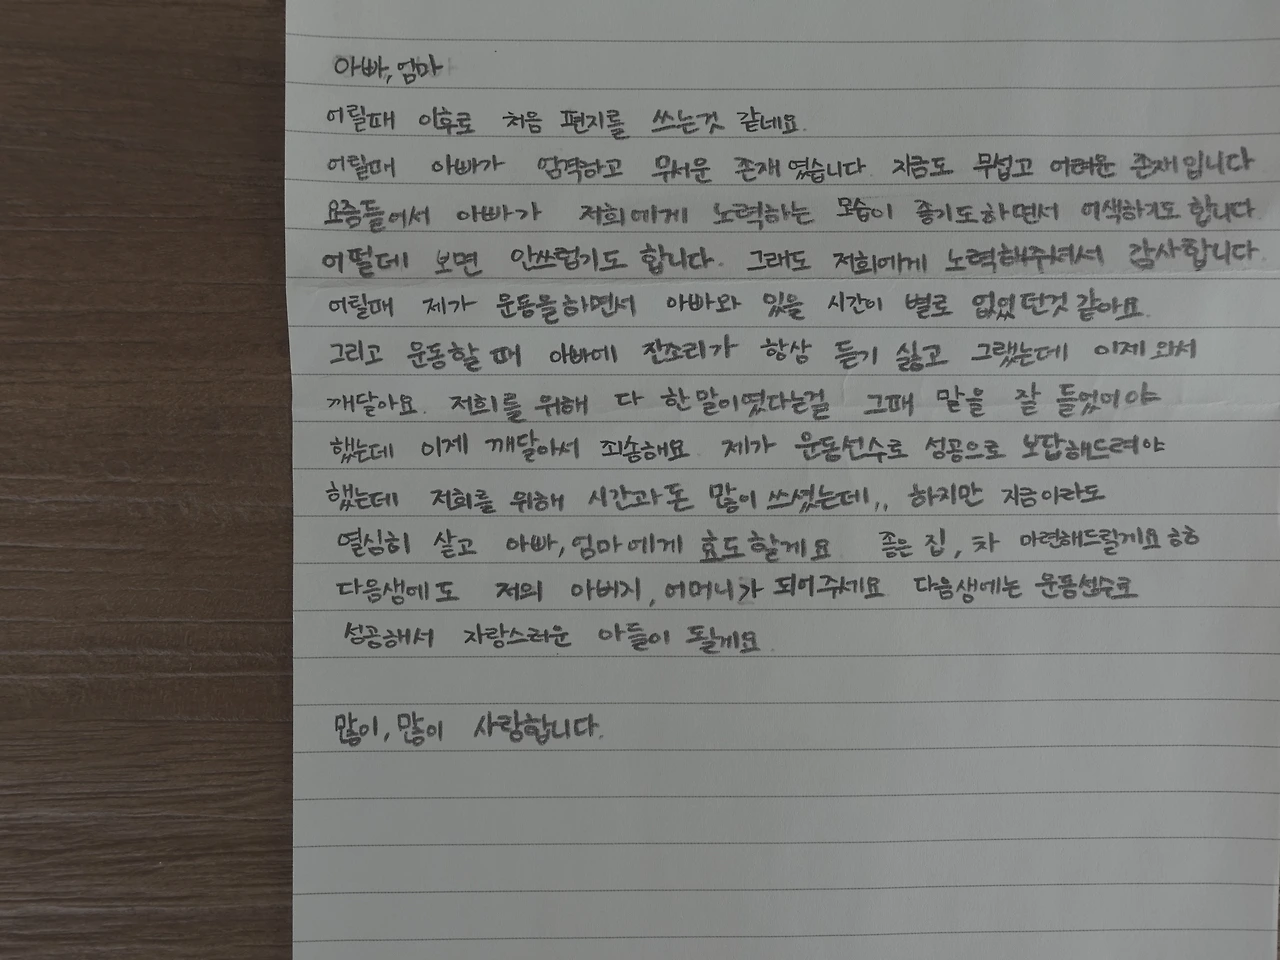 아빠, 엄마
어릴때 이후로 처음 편지를 쓰는것 같네요.
어릴때 아빠가 엄격하고 무서운 존재였습니다. 지금도 무섭고 어려운 존재입니다
요즘들어서 아빠가 저희에게 노력하는 모습이 좋기도하면서 어색하기도 합니다.
어떨데 보면 안쓰럽기도 합니다. 그래도 저희에게 노력해주셔서 감사합니다.
어릴때 제가 운동을하면서 아빠와 있을 시간이 별로 없었던것 같아요.
그리고 운동할 때 아빠에 잔소리가 항상 듣기 싫고 그랬는데 이제 와서
깨달아요. 저희를 위해 다 한말이였다는걸 그때 말을 잘 들었어야
했는데 이제 깨달아서 죄송해요. 제가 운동선수로 성공으로 보답해드려야
했는데 저희를 위해 시간과 돈 많이 쓰셨는데,, 하지만 지금이라도
열심히 살고 아빠, 엄마에게 효도할게요 좋은 집, 차 마련해드릴게요 ㅎㅎ
다음생에도 저의 아버지, 어머니가 되어주세요 다음생에는 운동선수로
성공해서 자랑스러운 아들이 될게요.
많이, 많이 사랑합니다.